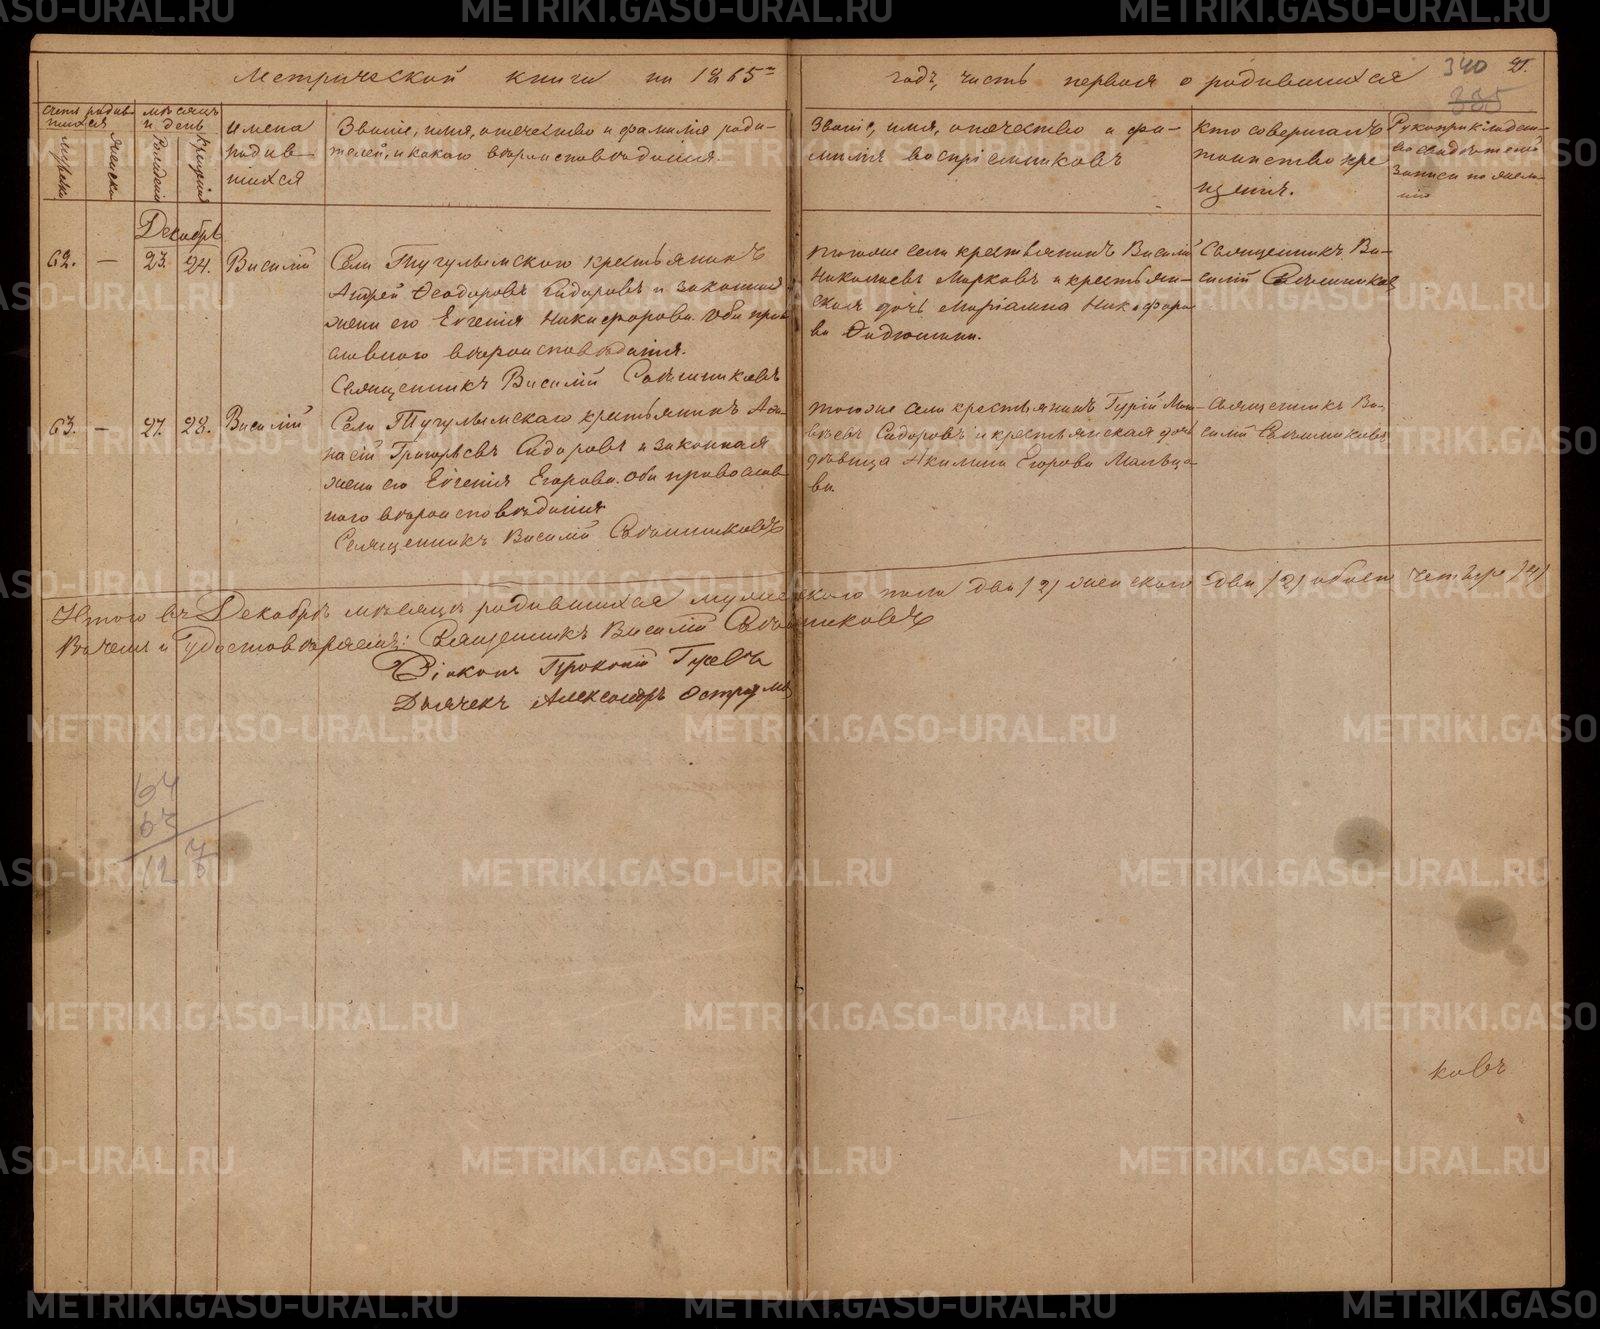 Метрической книги на 1865й
годъ, часть первая о родившихся 340
335
Счетъ родив-
шихся
мужеска
женска
мѣсяцъ
и день
Рожденія
Крещенія
Имена
родив-
шихся
Званіе, имя, отечество и фамилія роди-
телей, и какого вѣроисповѣданія.
Званіе, имя, отечество и фа-
милія воспріемниковъ
Кто совершалъ
таинство кре
щенія.
Рукоприкладст-
во свидѣтелей
записи по жела-
нію
Декабрь
62. — 23. 24. Василій
Села Тугулымскаго крестьянинъ
Андрей Ѳеодоровъ Сидоровъ и законная
жена его Евгенія Никифорова. Оба пра
славнаго вѣроисповѣданія.
Священникъ Василій Словишниковъ
тогоже села крестьянинъ Василій
Николаевъ Марковъ и крестьян-
ская дочь Маріамна Никифоро
ва
Священникъ Ва-
силій
63. — 27. 28. Василій
Села Тугулымскаго крестьянинъ Аѳа-
насій Григорьевъ Сидоровъ и законная
жена его Евгенія Егорова. Оба православ-
наго вѣроисповѣданія
Священникъ Василій
тогоже села крестьянинъ Гурій Мат-
вѣевъ Сидоровъ и крестьянская дочь
дѣвица Акилина Егорова Мальцо-
ва.
Священникъ Ва-
силій
Итого въ Декабрѣ мѣсяцѣ родившихся мужескаго пола два /2/ женскаго два /2/ обоего четыре /4/
В чемъ и удостовѣряемъ: Священникъ Василій
Діаконъ Прокопій Гусевъ
Дьячекъ Александръ
64
63
127
ковъ
METRIKI.GASO-URAL.RU